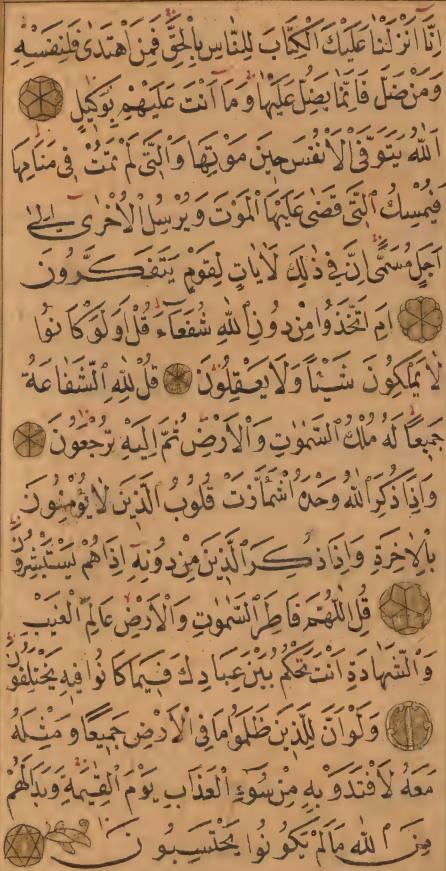 إِنَّا أَنْزَلْنَا عَلَيْكَ الْكِتَابَ لِلنَّاسِ بِالْحَقِّ فَمَنِ اهْتَدَىٰ فَلِنَفْسِهِ
وَمَنْ ضَلَّ فَإِنَّمَا يَضِلُّ عَلَيْهَا وَمَا أَنْتَ عَلَيْهِمْ بِوَكِيلٍ
اَللّٰهُ يَتَوَفَّى الْأَنْفُسَ حِينَ مَوْتِهَا وَالَّتِي لَمْ تَمُتْ فِي مَنَامِهَا
فَيُمْسِكُ الَّتِي قَضَىٰ عَلَيْهَا الْمَوْتَ وَيُرْسِلُ الْأُخْرَىٰ إِلَىٰ
أَجَلٍ مُسَمًّى إِنَّ فِي ذٰلِكَ لَآيَاتٍ لِقَوْمٍ يَتَفَكَّرُونَ
أَمِ اتَّخَذُوا مِنْ دُونِ اللّٰهِ شُفَعَاءَ قُلْ أَوَلَوْ كَانُوا
لَا يَمْلِكُونَ شَيْئًا وَلَا يَعْقِلُونَ قُلْ لِلّٰهِ الشَّفَاعَةُ
جَمِيعًا لَهُ مُلْكُ السَّمٰوَاتِ وَالْأَرْضِ ثُمَّ إِلَيْهِ تُرْجَعُونَ
وَإِذَا ذُكِرَ اللّٰهُ وَحْدَهُ اشْمَأَزَّتْ قُلُوبُ الَّذِينَ لَا يُؤْمِنُونَ
بِالْآخِرَةِ وَإِذَا ذُكِرَ الَّذِينَ مِنْ دُونِهِ إِذَا هُمْ يَسْتَبْشِرُونَ
قُلِ اللّٰهُمَّ فَاطِرَ السَّمٰوَاتِ وَالْأَرْضِ عَالِمَ الْغَيْبِ
وَالشَّهَادَةِ أَنْتَ تَحْكُمُ بَيْنَ عِبَادِكَ فِيمَا كَانُوا فِيهِ يَخْتَلِفُونَ
وَلَوْ أَنَّ لِلَّذِينَ ظَلَمُوا مَا فِي الْأَرْضِ جَمِيعًا وَمِثْلَهُ
مَعَهُ لَافْتَدَوْا بِهِ مِنْ سُوءِ الْعَذَابِ يَوْمَ الْقِيٰمَةِ وَبَدَا لَهُمْ
مِنَ اللّٰهِ مَا لَمْ يَكُونُوا يَحْتَسِبُونَ